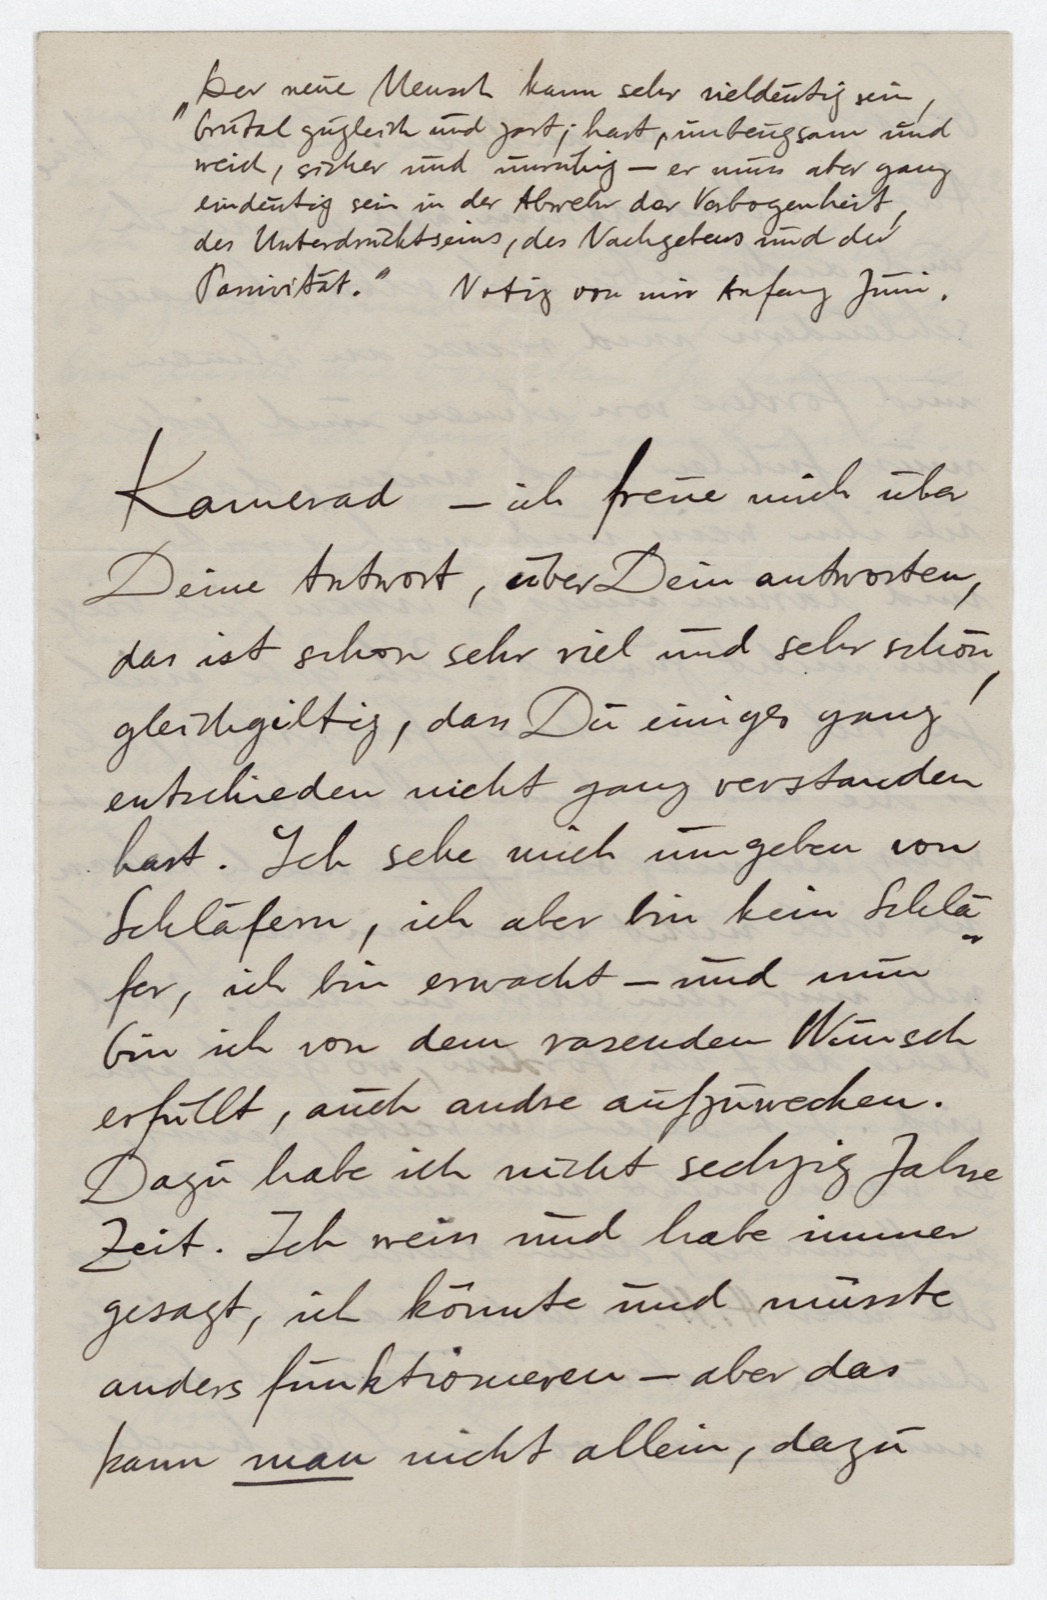 „Der neue Mensch kann sehr vieldeutig sein,
brutal zugleich und zart; hart, unbeugsam und
weich, sicher und unruhig — er muss aber ganz
eindeutig sein in der Abwehr der Verbogenheit,
des Unterdrücktseins, des Nachgebens und der
Passivität.“ Notiz von mir Anfang Juni.
Kamerad — ich freue mich über
Deine Antwort, über Dein antworten,
das ist schon sehr viel und sehr schön,
gleichgiltig, dass Du einiges ganz
entschieden nicht ganz verstanden
hast. Ich sehe mich umgeben von
Schläfern, ich aber bin kein Schlä-
fer, ich bin erwacht — und nun
bin ich von dem rasenden Wunsch
erfüllt, auch andre aufzuwecken.
Dazu habe ich nicht sechzig Jahre
Zeit. Ich weiss und habe immer
gesagt, ich könnte und müsste
anders funktionieren — aber das
kann man nicht allein, dazu